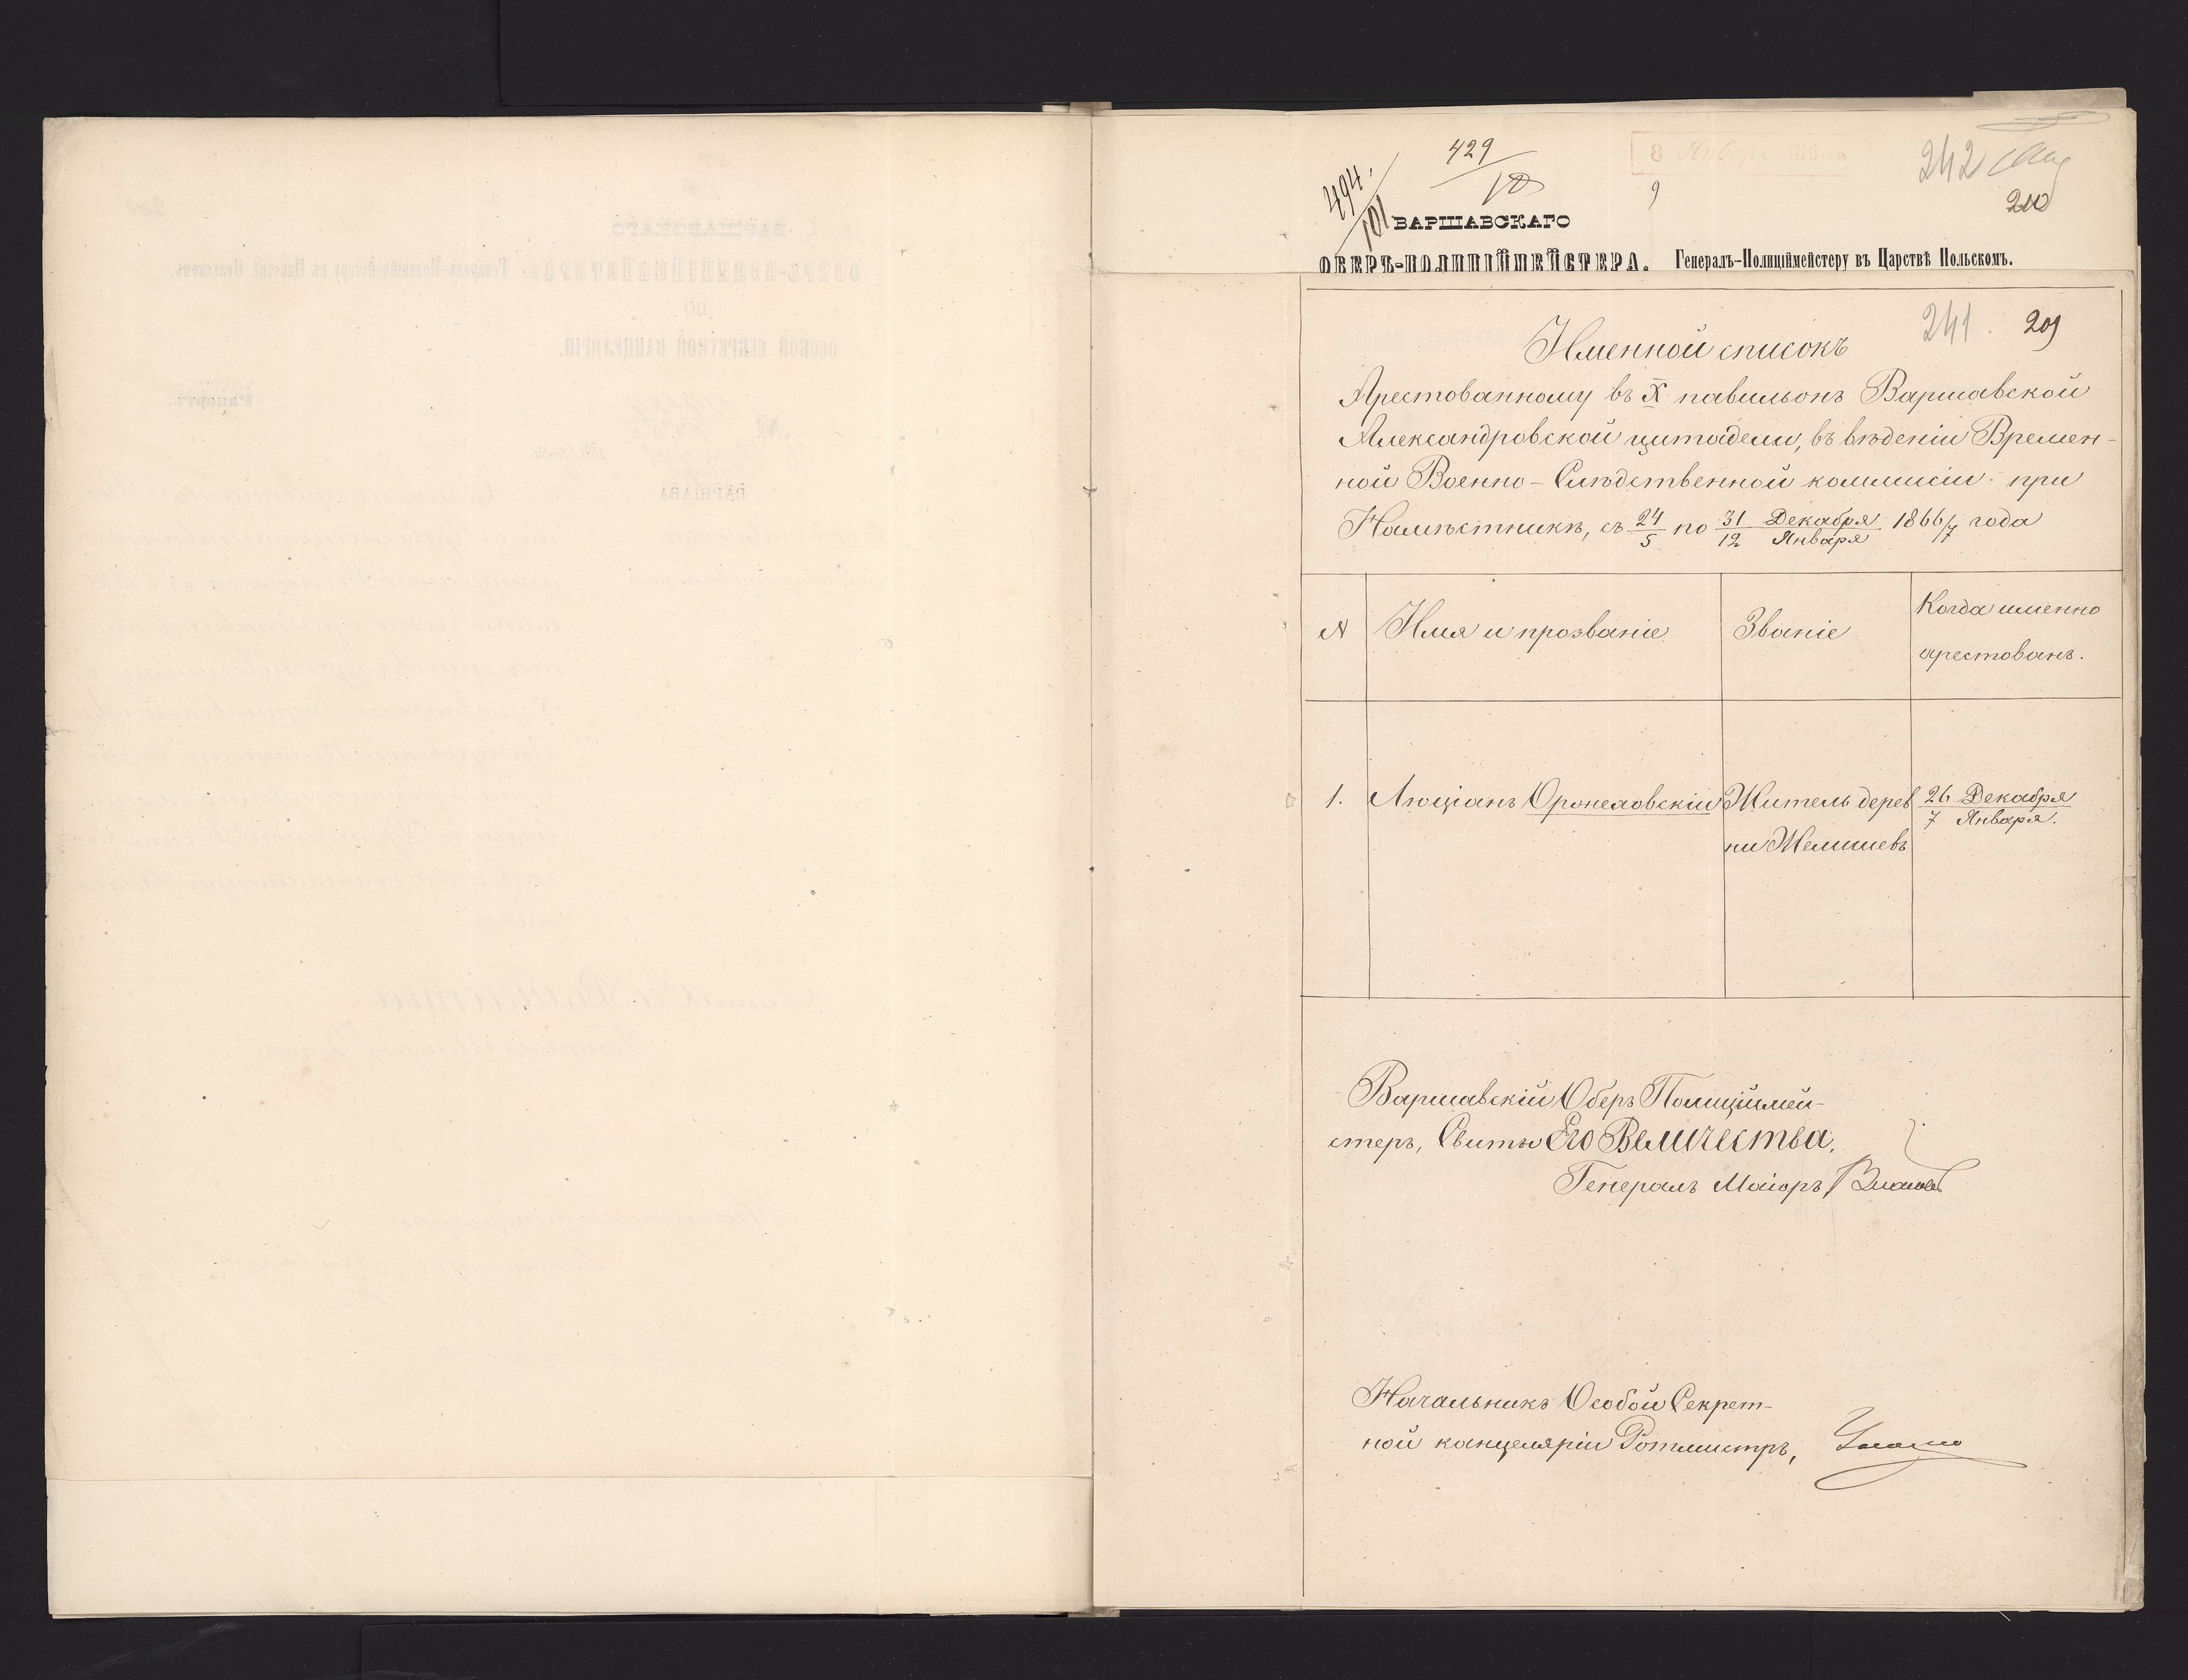 429
494.
101
242
210
ВАРШАВСКАГО
ОБЕРЪ-ПОЛИЦІЙМЕЙСТЕРА. Генералъ-Полиціймейстеру въ Царствѣ Польскомъ.
241. 209
Именной списокъ
Арестованному въ X павильонъ Варшавской
Александровской цитадели, въ вѣденіи Времен-
ной Военно-Слѣдственной коммисіи при
Намѣстникѣ, съ 24/5 по 31 Декабря/12 Января 1866/7 года
N Имя и прозваніе Званіе Когда именно
арестованъ.
1. Люціанъ Оронсловскій Житель дерев 26 Декабря
ни Желишевъ 7 Января.
Варшавскій Оберъ Полицімей-
стеръ, Свиты Его Величества,
Генералъ Маіоръ
Начальникъ Особой Секрет-
ной канцеляріи Ротмистръ,